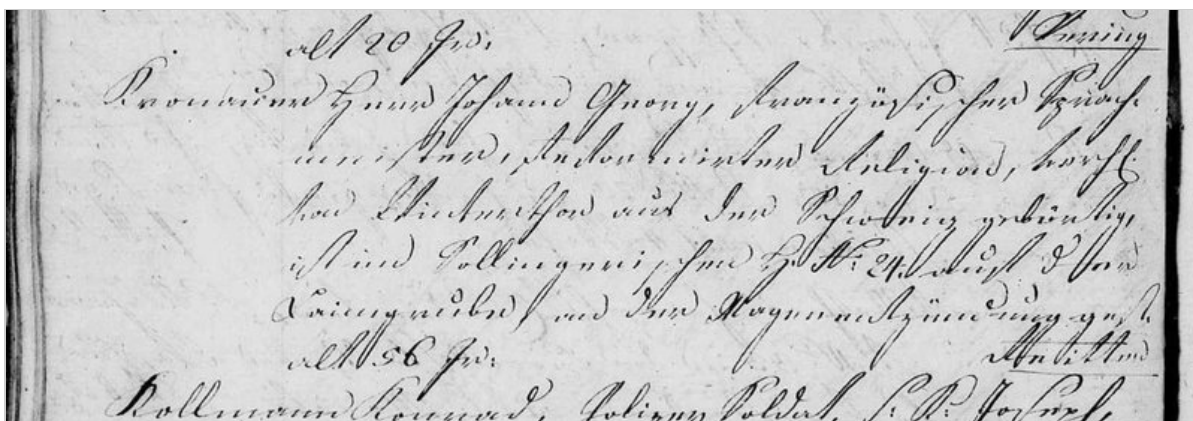 alt 20 Jr:
Vering
Kronauer Herr Johann Georg, französischer Sprach-
meister, reformirter Religion, verhl.
von Winterthor aus der Schweiz gebürtig,
ist im Sollingerischen H. Nr: 24. auf der
Laimgrube, an der Magenentzündung gest.
alt 56 Jr:
Kollmann Konrad, Polizey Soldat, Joseph,